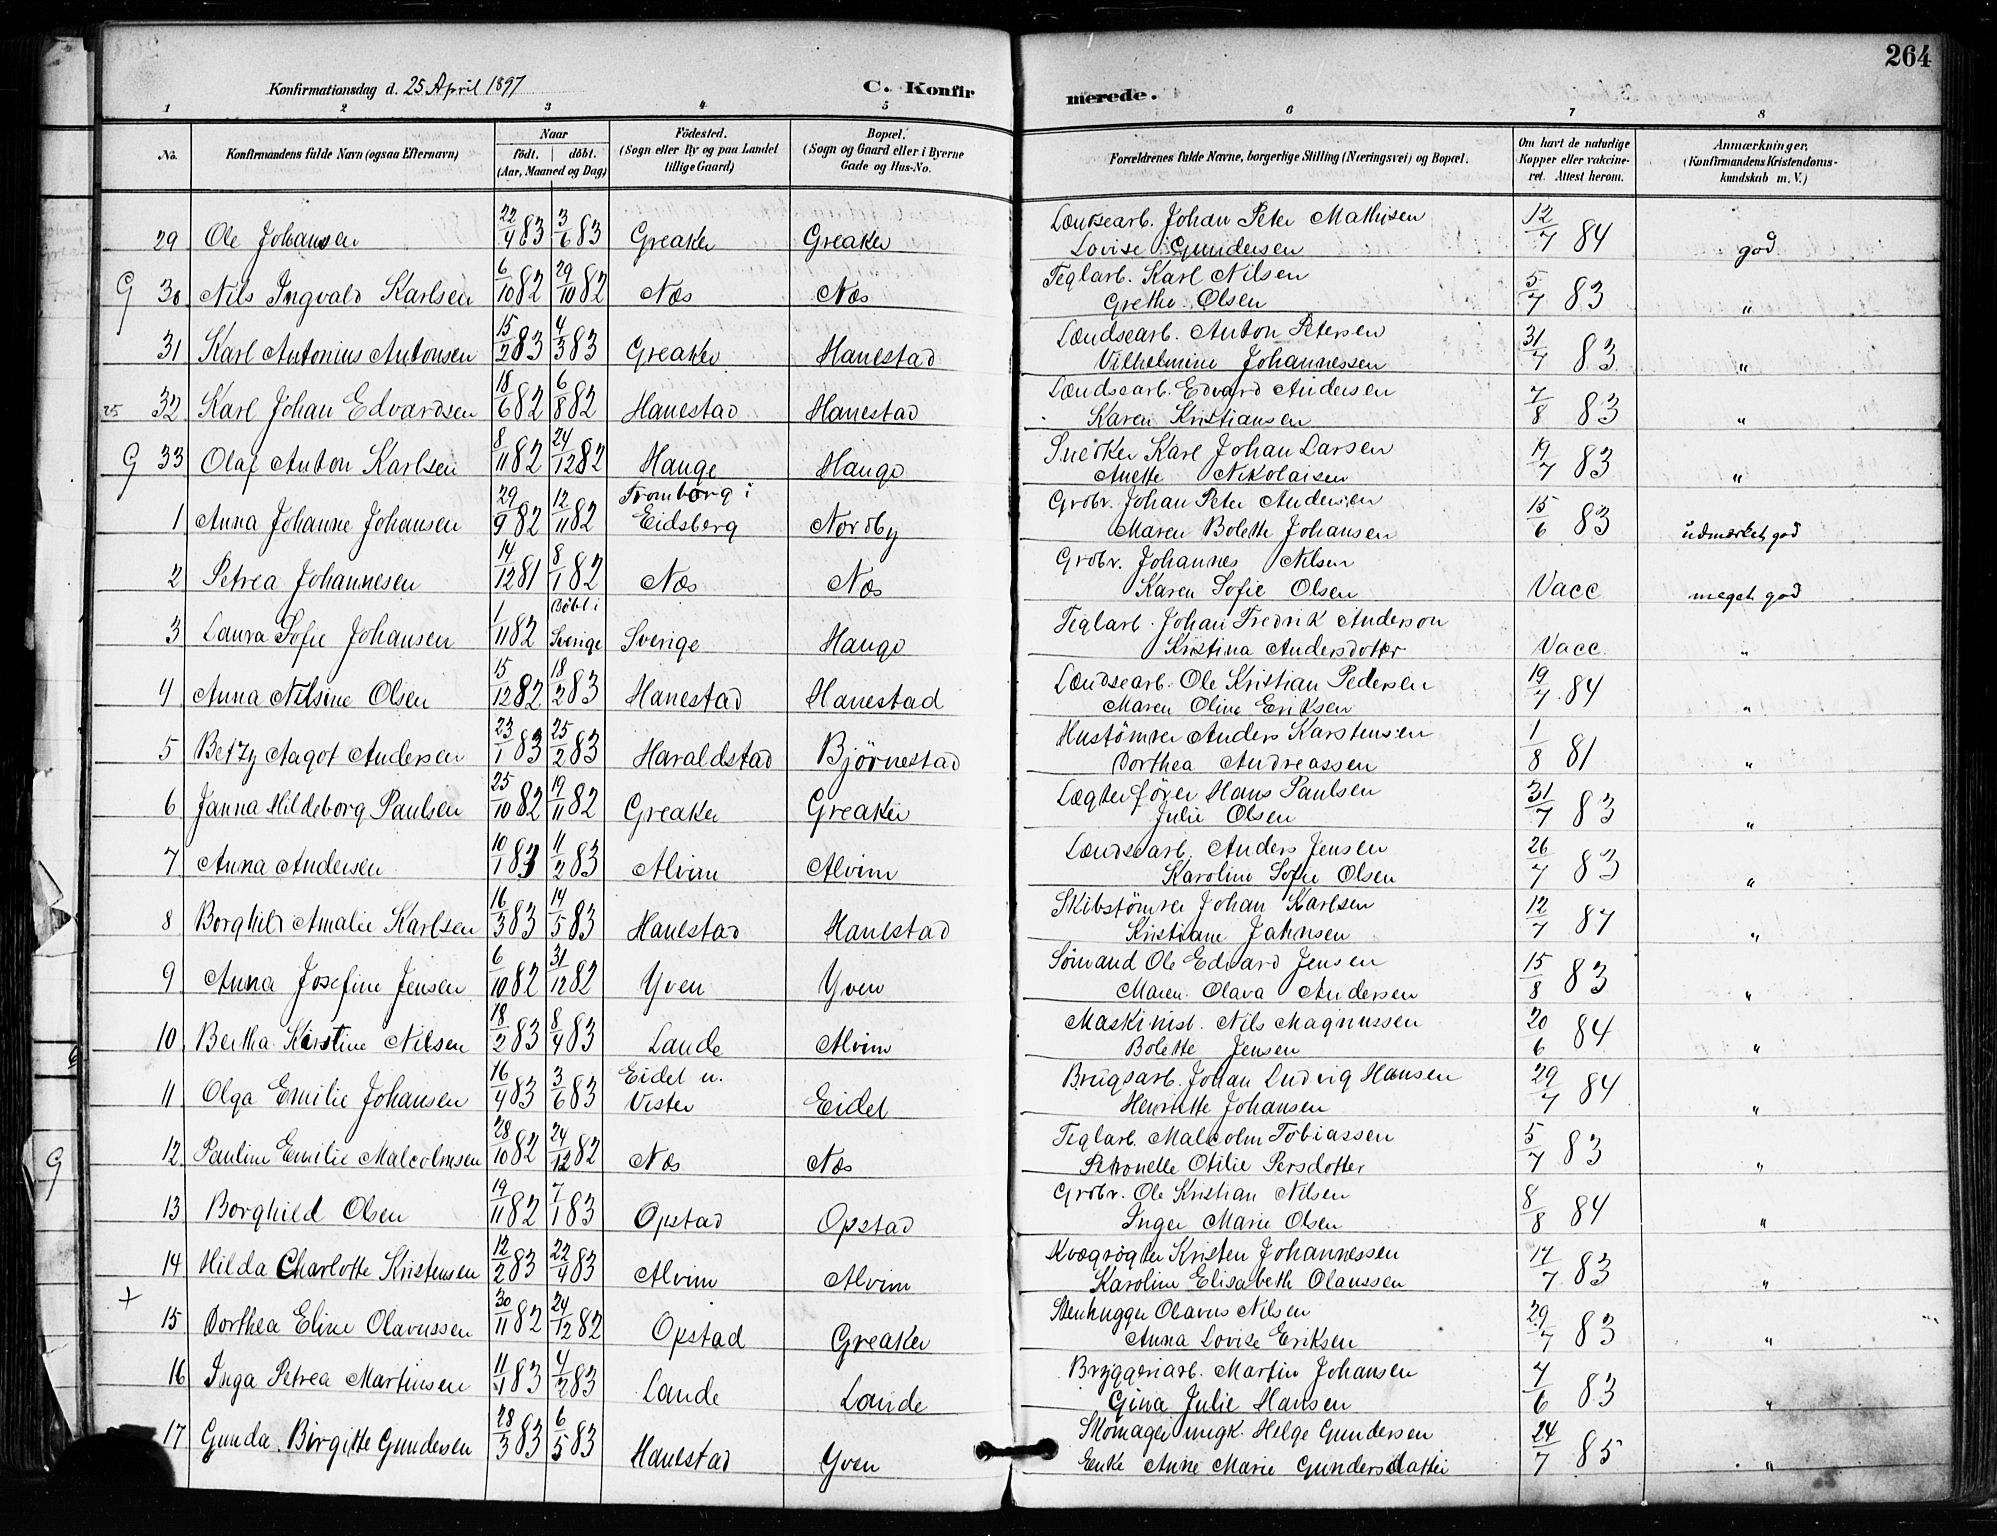 264
Konfirmationsdag d. 25 April 1897
C. Konfirmerede.
1 2 3 4 5 6 7 8
No.
Konfirmandens fulde Navn (ogsaa Efternavn)
Naar
født. | døbt.
(Aar, Maaned og Dag)
Fødested.
(Sogn eller By og paa Landet
tillige Gaard)
Bopæl.
(Sogn og Gaard eller i Byerne
Gade og Hus-No.
Forældrenes fulde Navne, borgerlige Stilling (Næringsvei) og Bopæl.
Om havt de naturlige
Kopper eller vakcine-
ret. Attest herom.
Anmærkninger.
(Konfirmandens Kristendoms-
kundskab m. V.)
29 Ole Johansen 22/4 83 3/6 83 Greaker Greaker Lændsearb. Johan Peter Mathisen 12/7 84 god
Lovise Gundersen
G 30 Nils Ingvald Karlsen 6/10 82 29/10 82 Næs Næs Teglarb. Karl Nilsen 5/7 83 "
Grethe Olsen
31 Karl Antonius Antonsen 15/2 83 4/3 83 Greaker Hanestad Lændsearb. Anton Petersen 31/7 83 "
Vilhelmine Johannessen
25 32 Karl Johan Edvardsen 18/6 82 6/8 82 Hanestad Hanestad Lændsearb. Edvard Andersen 7/8 83 "
Karen Kristiansen
G 33 Olaf Anton Karlsen 8/11 82 24/12 82 Hauge Hauge Snedker Karl Johan Larsen 19/7 83 "
Anette Nikolaisen
1 Anna Johanne Johansen 29/9 82 12/11 82 Tromborg i Eidsberg Nordby Grdbr. Johan Peter Andersen 15/6 83 udmærket god
Maren Bolette Johansen
2 Petrea Johannesen 14/12 81 8/1 82 Næs Næs Grdbr. Johannes Nilsen Vacc meget god
Karen Sofie Olsen
3 Laura Sofie Johansen 1/11 82 Døbt i Sverige Sverige Hauge Teglarb. Johan Fredrik Anderson Vacc. "
Kristina Andersdotter
4 Anna Nilsine Olsen 15/12 82 18/2 83 Hanestad Hanestad Lændsearb. Ole Kristian Pedersen 19/7 84 "
Maren Oline Eriksen
5 Betzy Aagot Andersen 23/1 83 25/2 83 Haraldstad Bjørnestad Hustømrer Anders Karstensen 1/8 81 "
Dorthea Andreassen
6 Janna Hildeborg Paulsen 25/10 82 19/11 82 Greaker Greaker Lægterfører Hans Paulsen 31/7 83 "
Julie Olsen
7 Anna Andersen 10/1 83 11/2 83 Alvim Alvim Lændsearb. Anders Jensen 26/7 83 "
Karoline Sofie Olsen
8 Borghild Amalie Karlsen 16/3 83 14/5 83 Hanestad Hanestad Skibstømrer Johan Karlsen 12/7 87 "
Kristiane Jahnsen
9 Anna Josefine Jensen 6/10 82 31/12 82 Yven Yven Sømand Ole Edvard Jensen 15/8 83 "
Maren Olava Andersen
10 Bertha Kirstine Nilsen 18/2 83 8/4 83 Lande Alvim Maskinist. Nils Magnussen 20/6 84 "
Bolette Jensen
11 Olga Emilie Johansen 16/4 83 3/6 83 Eidet u. Vister Eidet Brugsarb. Johan Ludvig Hansen 29/7 84 "
Henriette Johansen
12 Pauline Emilie Malcolmsen 28/10 82 24/12 82 Næs Næs Teglarb. Malcolm Tobiassen 5/7 83 "
Petronelle Otilie Persdotter
13 Borghild Olsen 19/11 82 7/1 83 Opstad Opstad Grdbr. Ole Kristian Nilsen 8/8 84 "
Inger Marie Olsen
14 Hilda Charlotte Kristensen 12/2 83 22/4 83 Alvim Alvim Kvægrøgter Kristen Johannessen 17/7 83 "
Karoline Elisabeth Olaussen
+ 15 Dorthea Eline Olavussen 30/11 82 24/12 82 Opstad Greaker Stenhugger Olavus Nilsen 29/7 83 "
Anna Lovise Eriksen
16 Inga Petrea Martinsen 11/1 83 4/2 83 Lande Lande Bryggeriarb. Martin Johansen 4/6 83 "
Gina Julie Hansen
17 Gunda Birgitte Gundersen 28/3 83 6/5 83 Hanestad Yven Skomager ungk. Helge Gundersen 24/7 85 "
Enke Anne Marie Gundersdatter
G